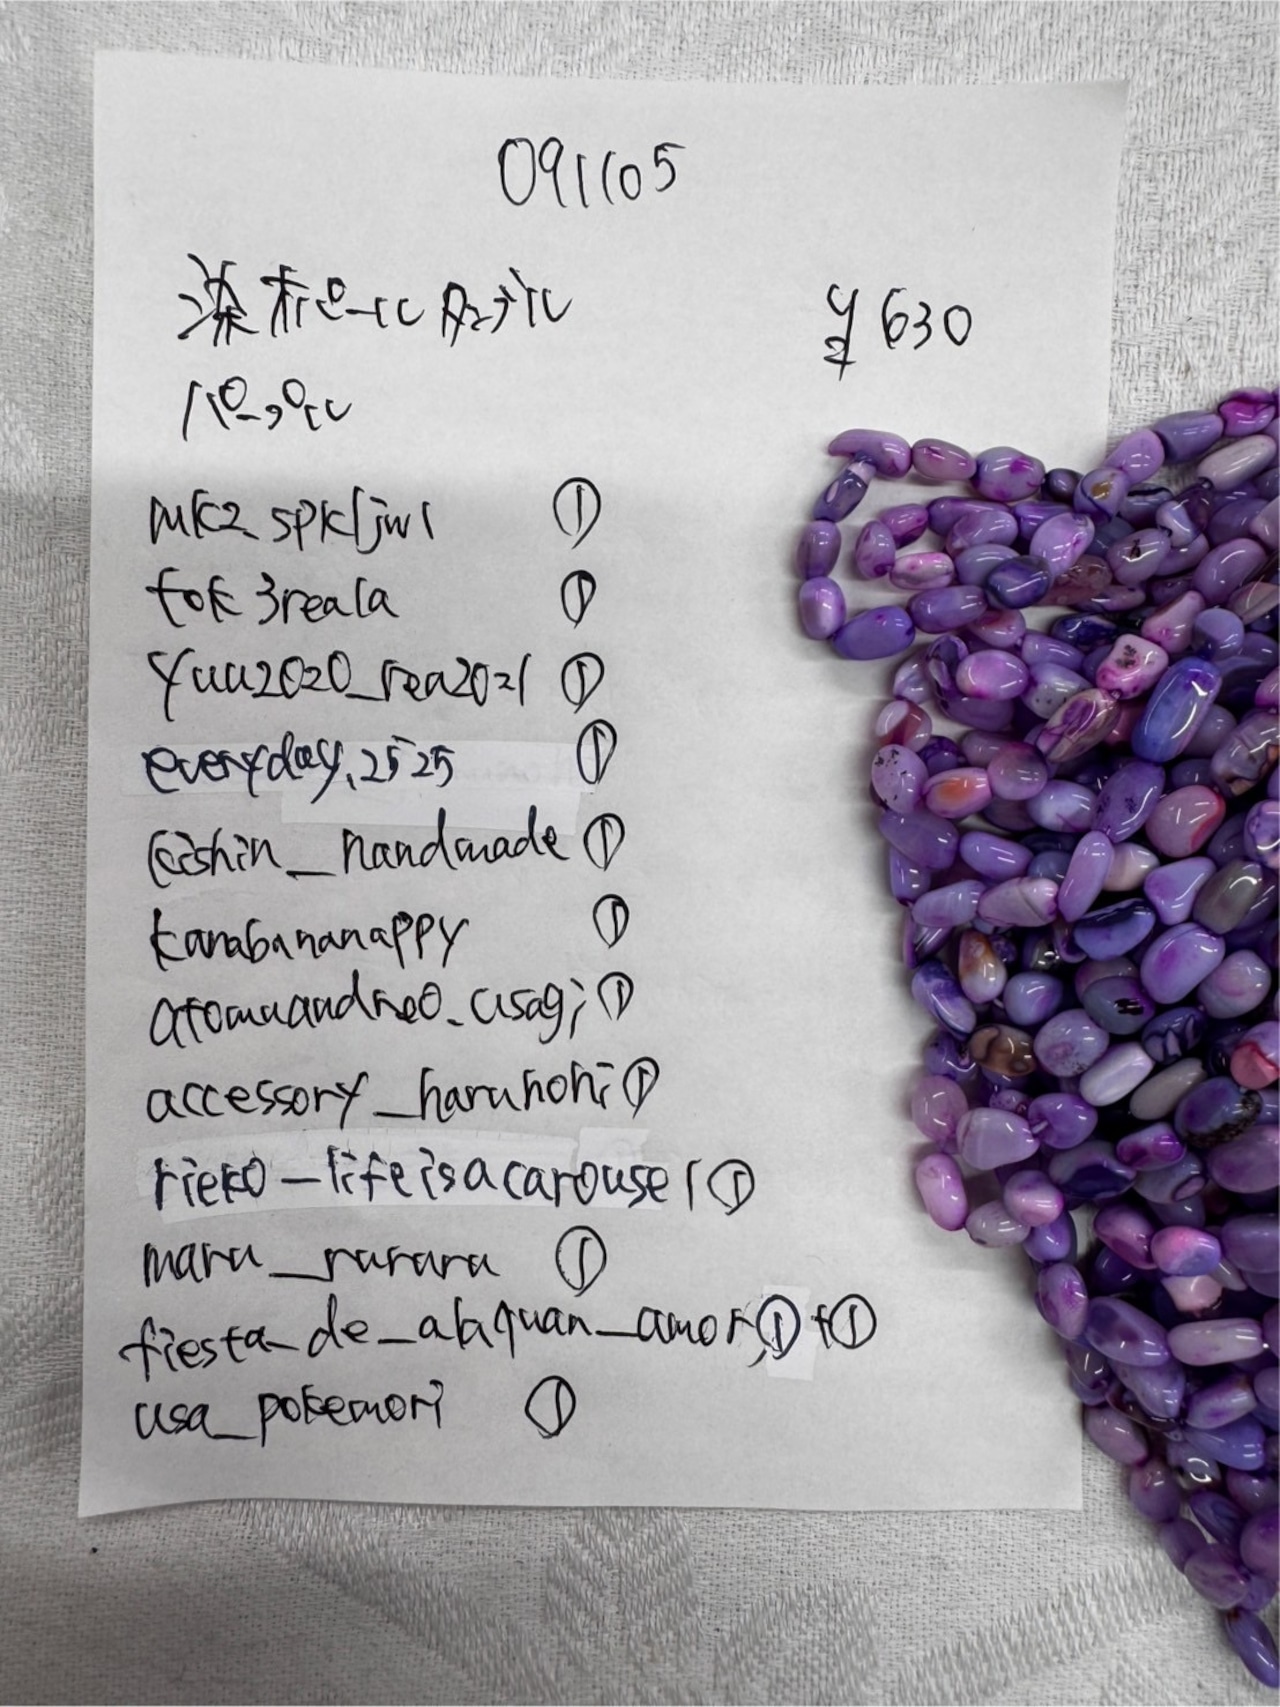 091105
染 パール
パープル
¥630
mk2_spkljwl ①
tok3reala ①
yuu2020_rea2021 ①
everyday.2525 ①
keishin_handmade ①
kanabananappy ①
atomuandreo_usagi ①
accessory_haruhohi ①
rieko_lifeisacarousel ①
maru_rurara ①
fiesta_de_alaquan_amor, ① + ①
usa_pokemori ①